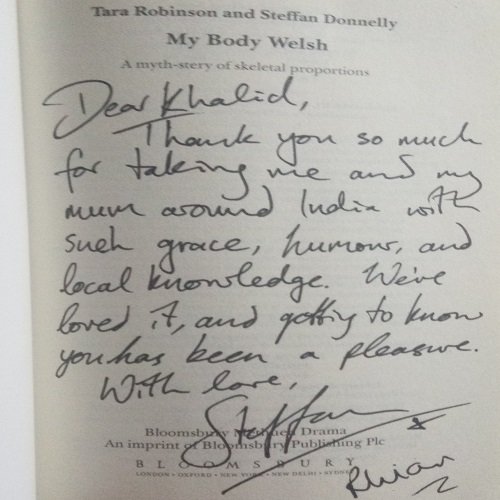 Tara Robinson and Steffan Donnelly
My Body Welsh
A myth-stery of skeletal proportions
Dear Khalid,
Thank you so much
for taking me and my
mum around India with
such grace, humour, and
local knowledge. We've
loved it, and getting to know
you has been a pleasure.
With love,
Steffan
&
Bloomsbury Methuen Drama
An imprint of Bloomsbury Publishing Plc
BLOOMSBURY
LONDON • OXFORD • NEW YORK • NEW DELHI • SYDNEY
Rhian